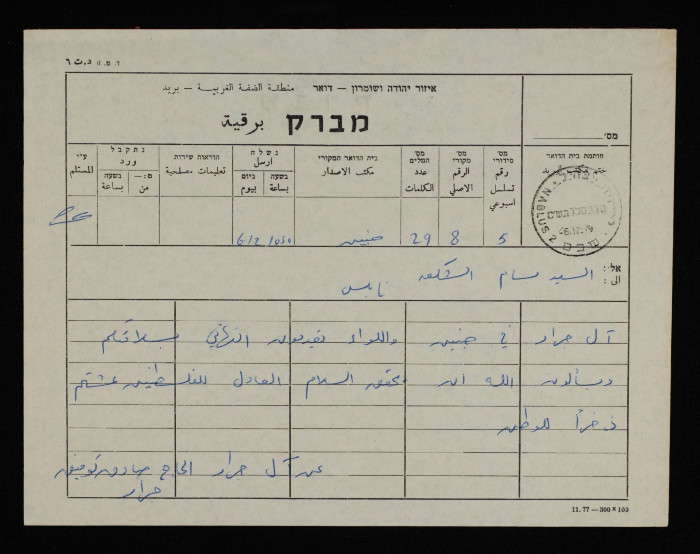 ד. ט. 11 د.ت ٦
איזור יהודה ושומרון – דואר منطقة الضفة الغربية – بريد
מברק برقية
מס׳
חותמת בית הדואר
מס׳ סידורי رقم تسلسل اسبوعي
מס׳ מקורי الرقم الاصلي
מס׳ המלים عدد الكلمات
בית הדואר המקורי مكتب الاصدار
נשלח ارسل
ביום بيوم
בשעה بساعة
הוראות שירות تعليمات مصلحية
נתקבל ورد
מ:— من
בשעה بساعة
ע״י المستلم
NABLUS 2 שכם
5 8 29 جنين 6.12 1050
אל: الى: السيد بسام الشكعه
نابلس
آل جرار في جنين واللواء يقدمون التهاني بسلامتكم
ويسألون الله ان يحقق السلام العادل للفلسطينين عشتم
ذخراً للوطن
عن آل جرار الحاج صادق توفيق
جرار
11.77 — 300 × 100